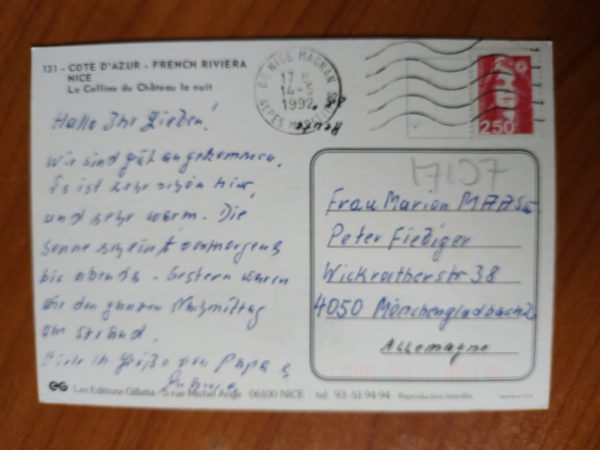 131 - COTE D'AZUR - FRENCH RIVIERA
NICE
La Colline du Château la nuit
06 NICE MAGNAN
17 H
14-5
1992
ALPES MARITIMES
2,50
Hallo Ihr Lieben!
Wir sind gut angekommen.
Es ist sehr schön hier,
und sehr warm. Die
Sonne scheint von morgens
bis abends - Gestern waren
wir den ganzen Nachmittag
am Strand.
Viele Grüße von Papa &
Frau Marion MAASs
Peter Fiediger
Wickratherstr 38
4050 Mönchengladbach 2
Allemagne
GG Les Editions Gilletta - 5 rue Michel Ange 06100 NICE - tél: 93-51-94-94 Reproduction interdite